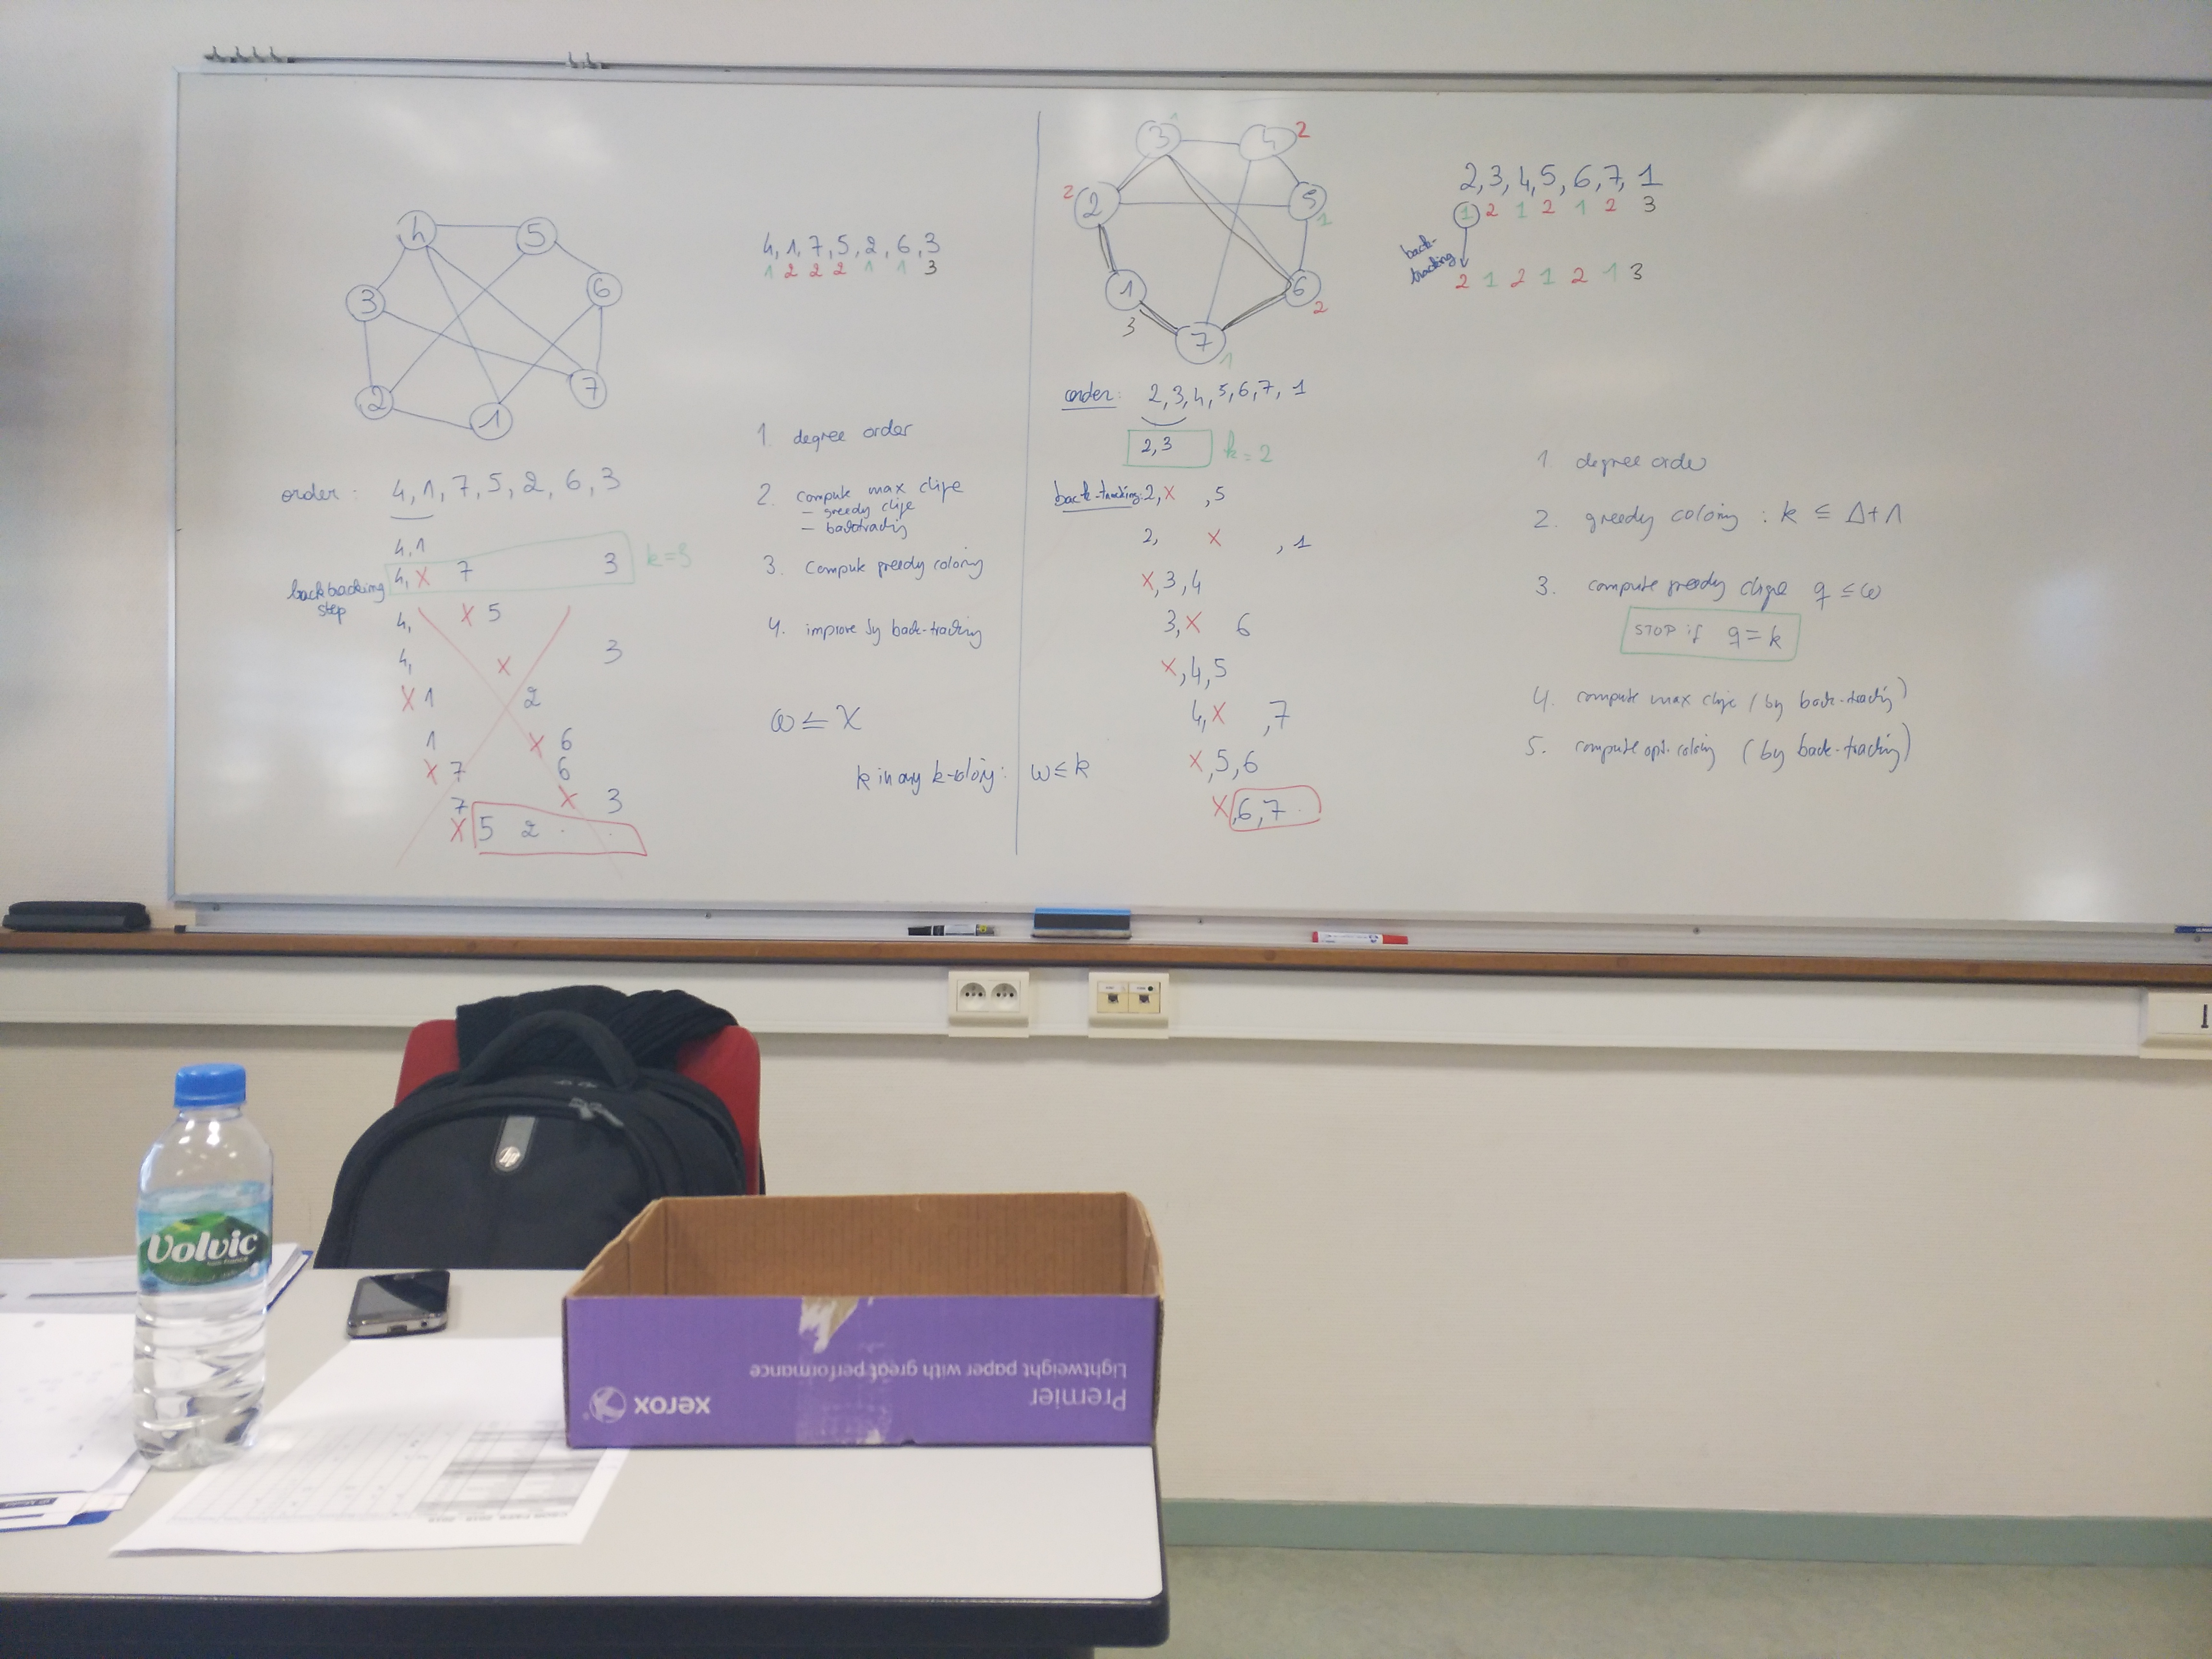 4
5
3
6
2
7
1
order: 4, 1, 7, 5, 2, 6, 3
4, 1
4, X 7 3 k=3
backtracking
step
4, X 5
4, X 3
X 1 2
1 X 6
X 7 6
7 X 3
X 5 2 . .
4, 1, 7, 5, 2, 6, 3
1 2 2 2 1 1 3
1. degree order
2. compute max clique
- greedy clique
- backtracking
3. Compute greedy coloring
4. improve by back-tracking
ω ≤ χ
k in any k-coloring: ω ≤ k
3 1
4 2
2 2
5 1
1 3
6 2
7 1
order: 2, 3, 4, 5, 6, 7, 1
2, 3 k = 2
back-tracking: 2, X , 5
2, X , 1
X, 3, 4
3, X 6
X, 4, 5
4, X , 7
X, 5, 6
X, 6, 7 .
2, 3, 4, 5, 6, 7, 1
1 2 1 2 1 2 3
back-
tracking
2 1 2 1 2 1 3
1. degree order
2. greedy coloring : k ≤ Δ+1
3. compute greedy clique q ≤ ω
STOP if q = k
4. compute max clique (by back-tracking)
5. compute opt. coloring (by back-tracking)
hp
Volvic
Premier
Lightweight paper with great performance
xerox